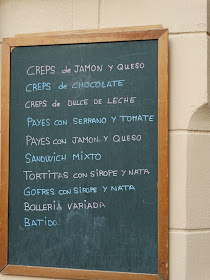 CREPS de JAMON Y QUESO
CREPS de CHOCOLATE
CREPS de DULCE DE LECHE
PAYES CON SERRANO Y TOMATE
PAYES CON JAMON Y QUESO
SANDWICH MIXTO
TORTITAS CON SIROPE Y NATA
GOFRES CON SIROPE Y NATA
BOLLERIA VARIADA
BATIDO